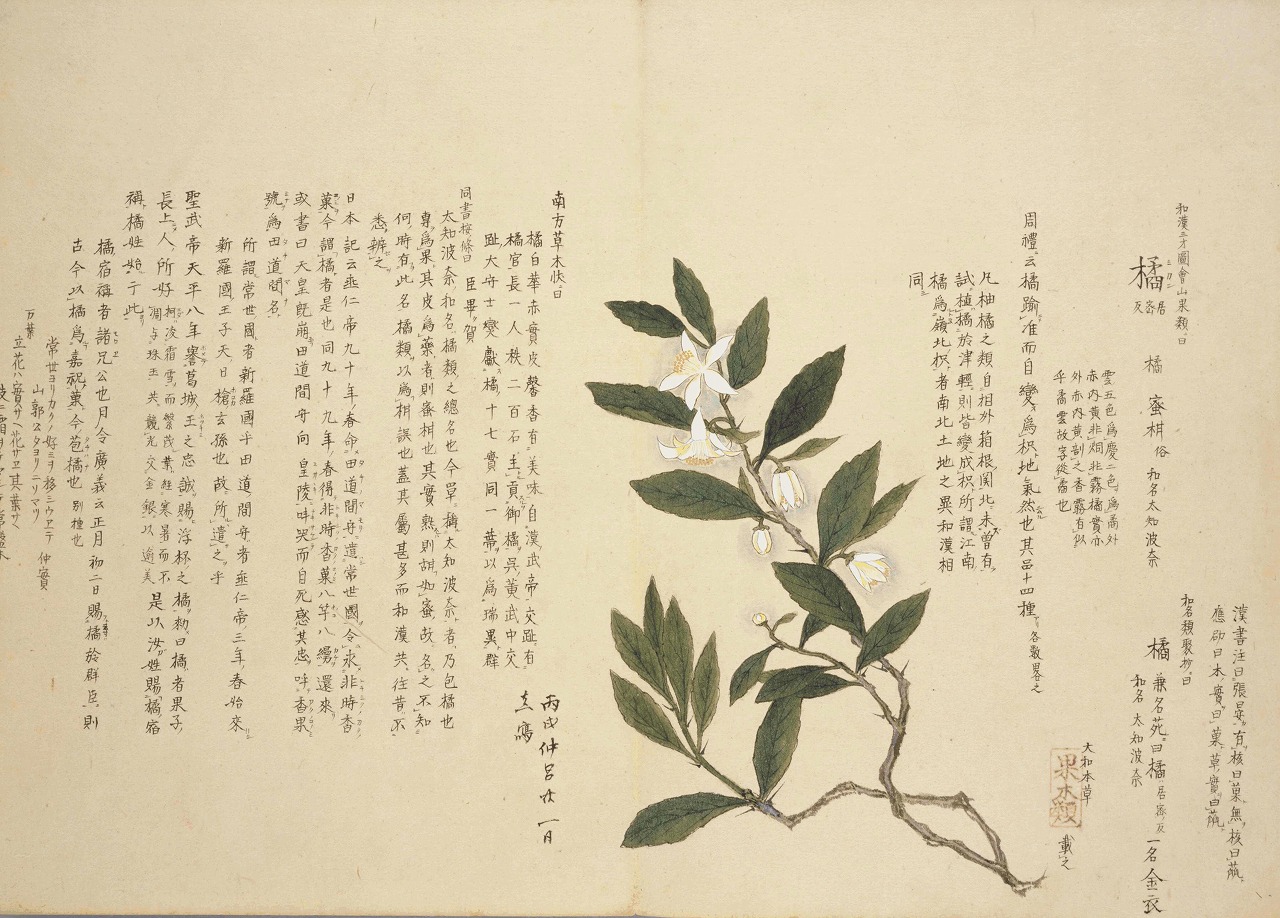 漢書注曰張晏有核曰菓無核曰蓏
應劭曰木實曰菓草實曰蓏
和名類聚抄曰
橘 兼名苑曰橘 居密反 一名金衣
和名 太知波奈
和漢三才圖會山果類曰
橘 ミカン 居密反
橘 蜜柑 俗 和名太知波奈
雲五色爲慶二色爲矞外
赤内黄非烟非霧橘實亦
外赤内黄剖之香霧有似
乎矞雲故字從矞也
周禮云橘踰准而自變爲枳地氣然也其品十四種 各数畧之
凡柚橘之類自相外箱根関北未曽有
試植橘於津輕則皆變成枳所謂江南
橘爲嶺北枳者南北土地之異和漢相
同
大和本草
果木類
載之
南方草木状曰
橘白華赤實皮馨香有美味自漢武帝交趾有
橘官長一人秩二百石主貢御橘呉黄武中交
趾大守士燮獻橘十七實同一蔕以爲瑞異群
臣畢賀
丙戌仲呂廿一日
真寫
同書桉條曰
太知波奈和名橘類之總名也今單稱太知波奈者乃包橘也
專爲果其皮爲藥者則蜜柑也其實熟則甜如蜜故名之不知
何時有此名橘類以爲柑誤也蓋其屬甚多而和漢共往昔不
悉辨之
日本記云垂仁帝九十年春命田道間守遣常世國令求非時香
菓今謂橘者是也同九十九年春得非時香菓八竿八縵還來
或書曰天皇既崩田道間守向皇陵呌哭而自死感其忠呼香果
號爲田道間名
所謂常世國者新羅國乎田道間守者垂仁帝三年春始來
新羅國王子天日槍玄孫也故所遣之乎
聖武帝天平八年譽葛城王之忠誠賜浮杯之橘勅曰橘者果子
長上人所好 柯凌霜雪而繁茂葉經寒暑而不
凋与珠玉共競光交金銀以逾美 是以汝姓賜橘宿
禰橘姓始于此
橘宿禰者諸兄公也月令廣義云正月初二日賜橘於群臣則
古今以橘爲嘉祝菓今苞橘也 別種也
常世ヨリカクノ好ミヲ移シウヱテ 仲實
山郭公タヨリニソマツ
万葉
立花ハ實サヘ花サヱ其葉サヘ